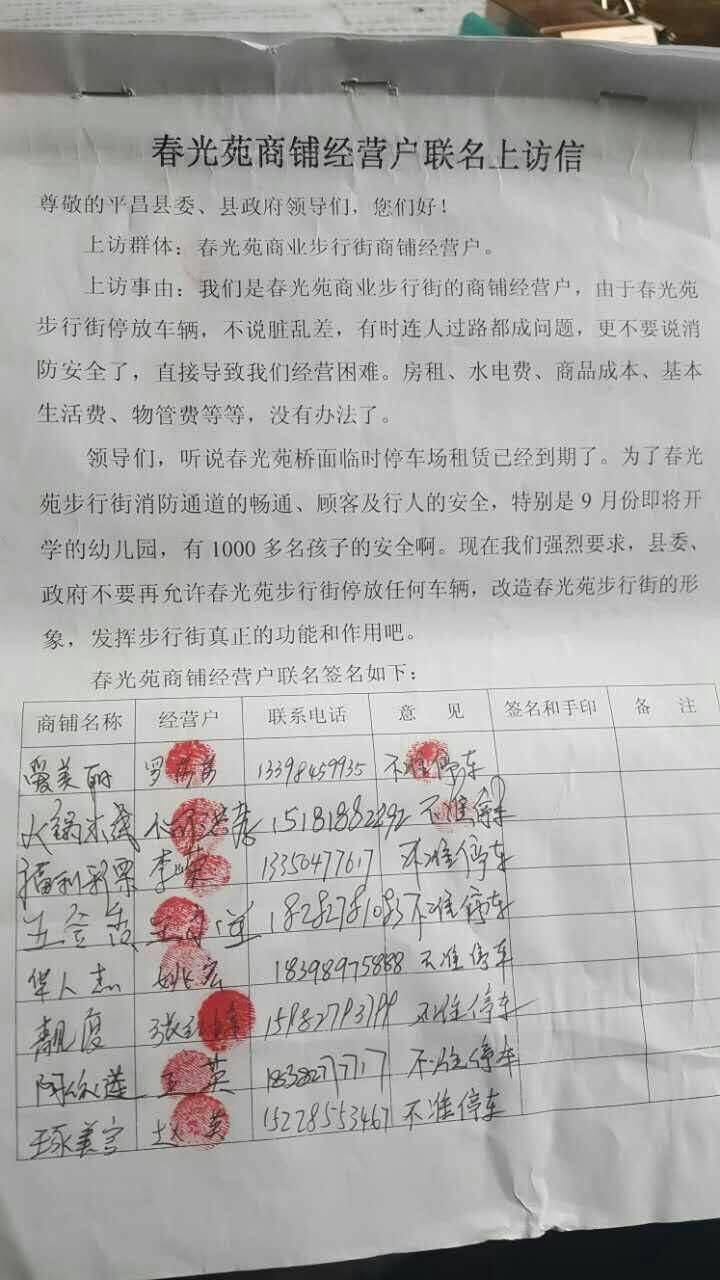 春光苑商铺经营户联名上访信
尊敬的平昌县委、县政府领导们，您们好！
上访群体：春光苑商业步行街商铺经营户。
上访事由：我们是春光苑商业步行街的商铺经营户，由于春光苑
步行街停放车辆，不说脏乱差，有时连人过路都成问题，更不要说消
防安全了，直接导致我们经营困难。房租、水电费、商品成本、基本
生活费、物管费等等，没有办法了。
领导们，听说春光苑桥面临时停车场租赁已经到期了。为了春光
苑步行街消防通道的畅通、顾客及行人的安全，特别是 9 月份即将开
学的幼儿园，有 1000 多名孩子的安全啊。现在我们强烈要求，县委、
政府不要再允许春光苑步行街停放任何车辆，改造春光苑步行街的形
象，发挥步行街真正的功能和作用吧。
春光苑商铺经营户联名签名如下：
商铺名称 经营户 联系电话 意 见 签名和手印 备 注
爱美丽 罗 13398459935 不准停车
火锅米线 15181882292 不准停车
福利彩票 李 13350477617 不准停车
五金 王 不准停车
华人杰 姚宏 18398975888 不准停车
靓 张 不准停车
阿 王英 18382777717 不准停车
琢美 赵英 15228553467 不准停车